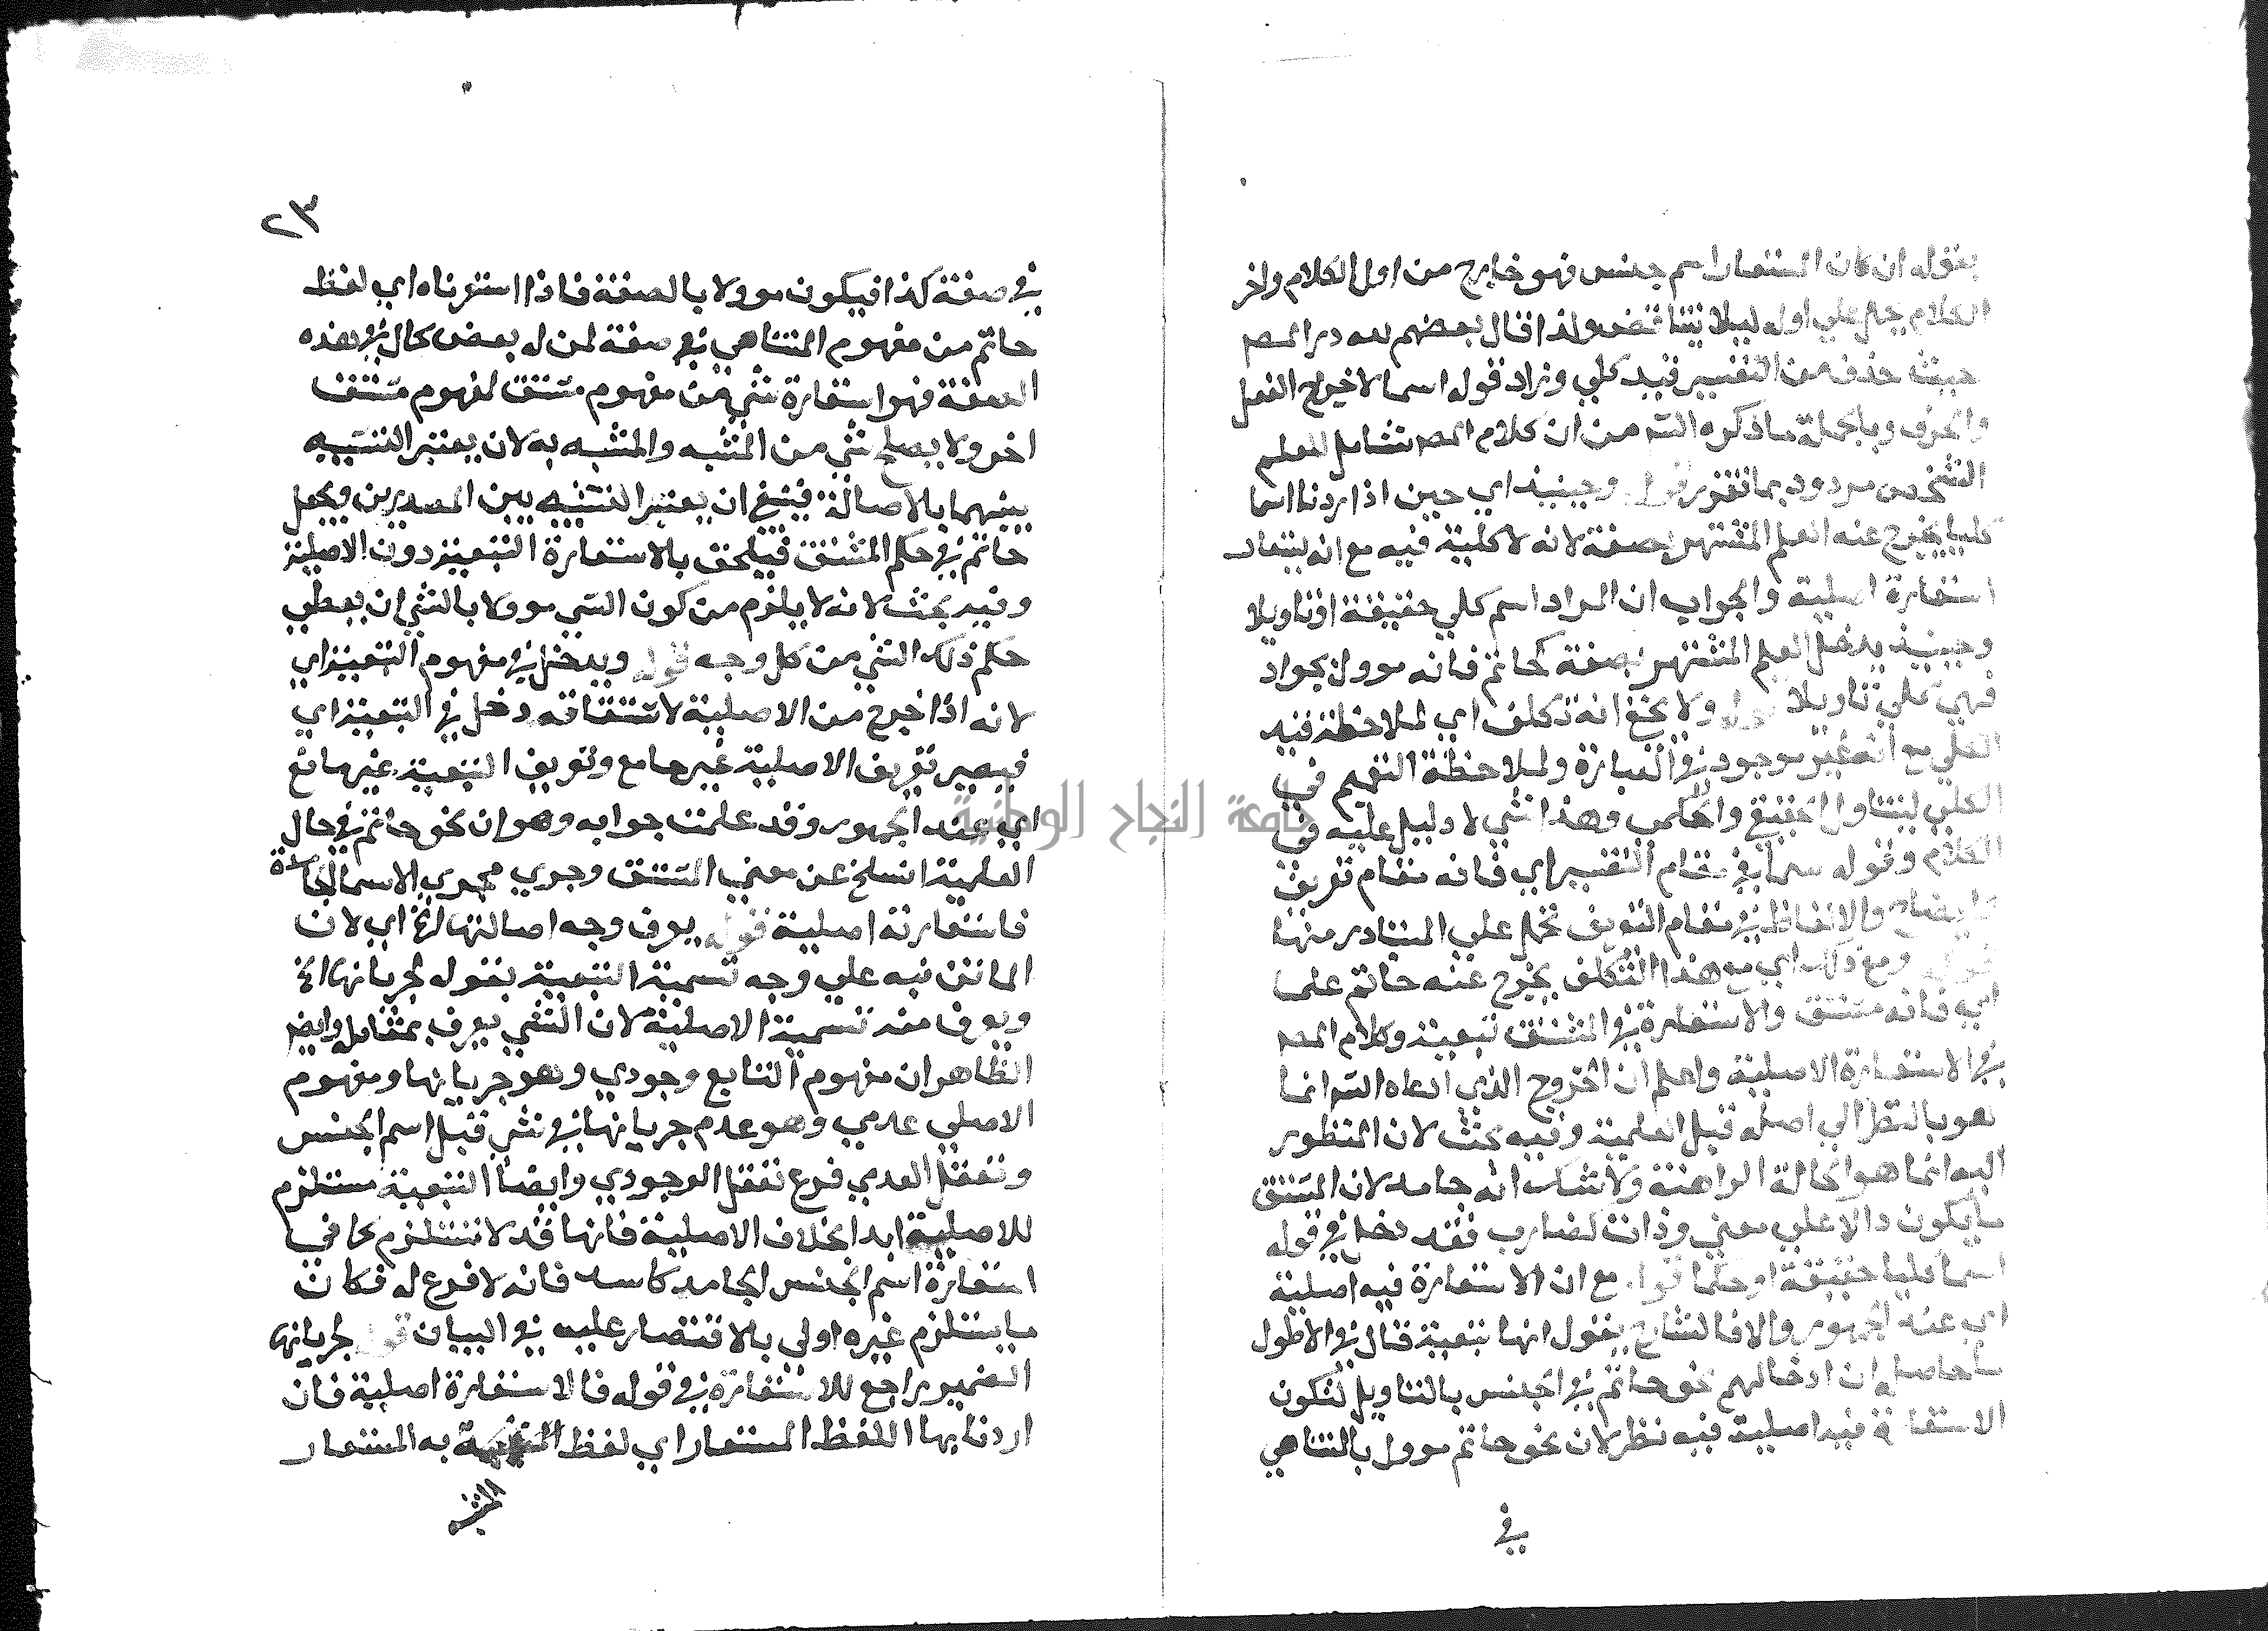 بقوله ان كان المستعار اسم جنس فهو خارج من اول الكلام واخر
الكلام يحمل علي اوله ليلا يتناقض ولذا قال بعضهم لله در المص
حيث حذف من التفسير قيد كلي وزاد قوله اسما لاخراج الفعل
والحرف وبالجملة ما ذكره الش من ان كلام المص شامل للعلم
الشخصي مردود بما تقرر قوله وحينيذ اي حين اذا ردنا اسما
كليا يخرج عنه العلم المشتهر بصفة لانه لا كلية فيه مع انه يستعار
استعارة اصلية والجواب ان المراد اسم كلي حقيقة او تاويلا
وحينيذ يدخل العلم المشتهر بصفة كحاتم فانه موول بجواد
فهي كلي تاويلا قوله ولا يخفي انه تكلف اي لملاحظة فيه
الكلي مع انه غير موجود في العبارة ولملاحظة التعميم في
الكلي ليتناول الحقيقي والحكمي وهذا شي لا دليل عليه في
الكلام وقوله سيما في مقام التفسير اي فانه مقام تعريف
وايضاح والالفاظ في مقام التعريف تحمل علي المتبادر منها
قوله ومع ذلك اي مع هذا التكلف يخرج عنه حاتم علما
اي فانه مشتق والاستعارة في المشتق تبعية وكلام المص
في الاستعارة الاصلية واعلم ان الخروج الذي ادعاه الش انما
هو بالنظر الي اصله قبل العلمية وفيه بحث لان المنظور
اليه انما هو الحالة الراهنة ولا شك انه جامد لان المشتق
ما يكون دالا علي معني وذات كضارب فقد دخل في قوله
اسما كليا حقيقة او حكما قوله مع ان الاستعارة فيه اصلية
اي عند الجمهور والا فالشارح يقول انها تبعية قال في الاطول
ما حاصله ان ادخالهم نحو حاتم في الجنس بالتاويل لتكون
الاستعارة فيه اصلية فيه نظر لان نحو حاتم موول بالتناهي
في
٢٣
في صفة كذا فيكون موولا بالصفة فاذا استعرناه اي لفظ
حاتم من مفهوم المتناهي في صفة لمن له بعض كمال في هذه
الصفة فهو استعارة شي من مفهوم مشتق لمفهوم مشتق
اخر ولا يصلح شي من المشبه والمشبه به لان يعتبر التشبيه
بينهما بالاصالة فينبغي ان يعتبر التشبيه بين المصدرين ويجعل
حاتم في حكم المشتق فيلحق بالاستعارة التبعية دون الاصلية
وفيه بحث لانه لا يلزم من كون الشي موولا بالشي ان يعطي
حكم ذلك الشي من كل وجه قوله ويدخل في مفهوم التبعية اي
لانه اذا خرج من الاصلية لاشتقاقه دخل في التبعية اي
فيصير تعريف الاصلية غير جامع وتعريف التبعية غير مانع
اي عند الجمهور وقد علمت جوابه وهو ان نحو حاتم في حال
العلمية انسلخ عن معني المشتق وجري مجري الاسما الجامدة
فاستعارته اصلية قوله يعرف وجه اصالتها الخ اي لان
الماتن نبه علي وجه تسمية التبعية بقوله لجريانها الخ
ويعرف منه تسمية الاصلية لان الشي يعرف بمقابله وايض
الظاهر ان مفهوم التابع وجودي وهو جريانها ومفهوم
الاصلي عدمي وهو عدم جريانها في شي قبل اسم الجنس
وتعقل العدمي فرع تعقل الوجودي وايضا التبعية مستلزم
للاصلية ابدا بخلاف الاصلية فانها قد لا تستلزم كما في
استعارة اسم الجنس الجامد كاسد فانه لا فرع له فكان
ما يستلزم غيره اولى بالاقتصار عليه في البيان قوله لجريانها
الضمير راجع للاستعارة في قوله فالاستعارة اصلية فان
اردنا بها اللفظ المستعار اي لفظ المشبه به المستعار
للمشبه
جامعة النجاح الوطنية